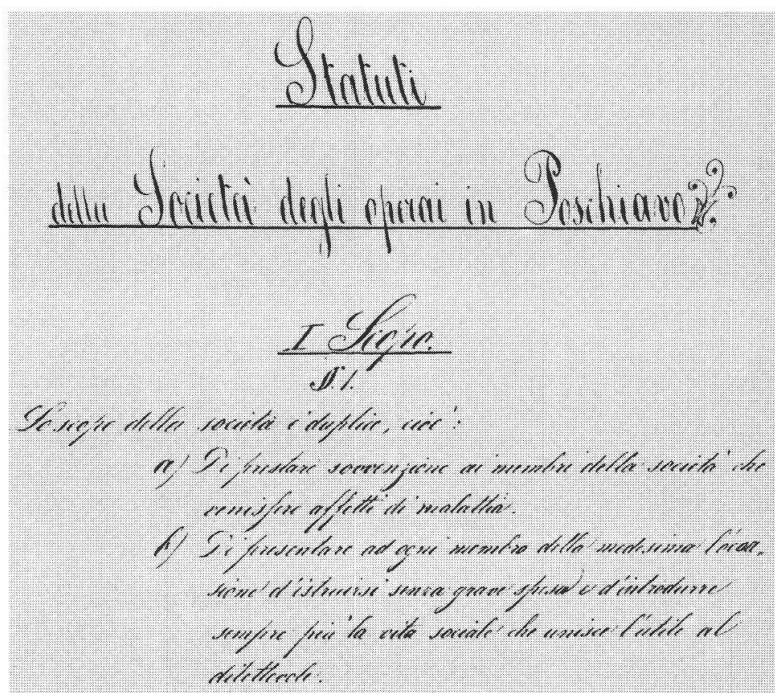 Statuti
della Società degli operai in Poschiavo
I Scopo.
§. 1.
Lo scopo della società è duplice, cioè:
a) Di prestare sovvenzione ai membri della società che
venissero affetti di malattia.
b) Di presentare ad ogni membro della medesima l'occa-
sione d'istruirsi senza grave spesa e d'introdurre
sempre più la vita sociale che unisce l'utile al
dilettevole.